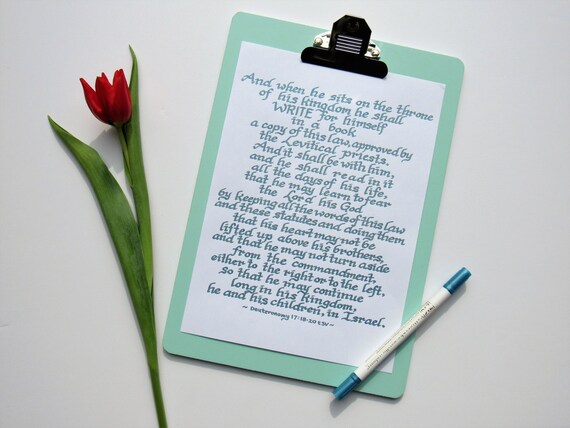 And when he sits on the throne
of his kingdom he shall
WRITE for himself
in a book
a copy of this law, approved by
the Levitical priests.
And it shall be with him,
and he shall read in it
all the days of his life,
that he may learn to fear
the Lord his God
by keeping all the words of this law
and these statutes and doing them
that his heart may not be
lifted up above his brothers,
and that he may not turn aside
from the commandment,
either to the right or to the left,
so that he may continue
long in his kingdom,
he and his children, in Israel.
~ Deuteronomy 17:18-20 ESV ~